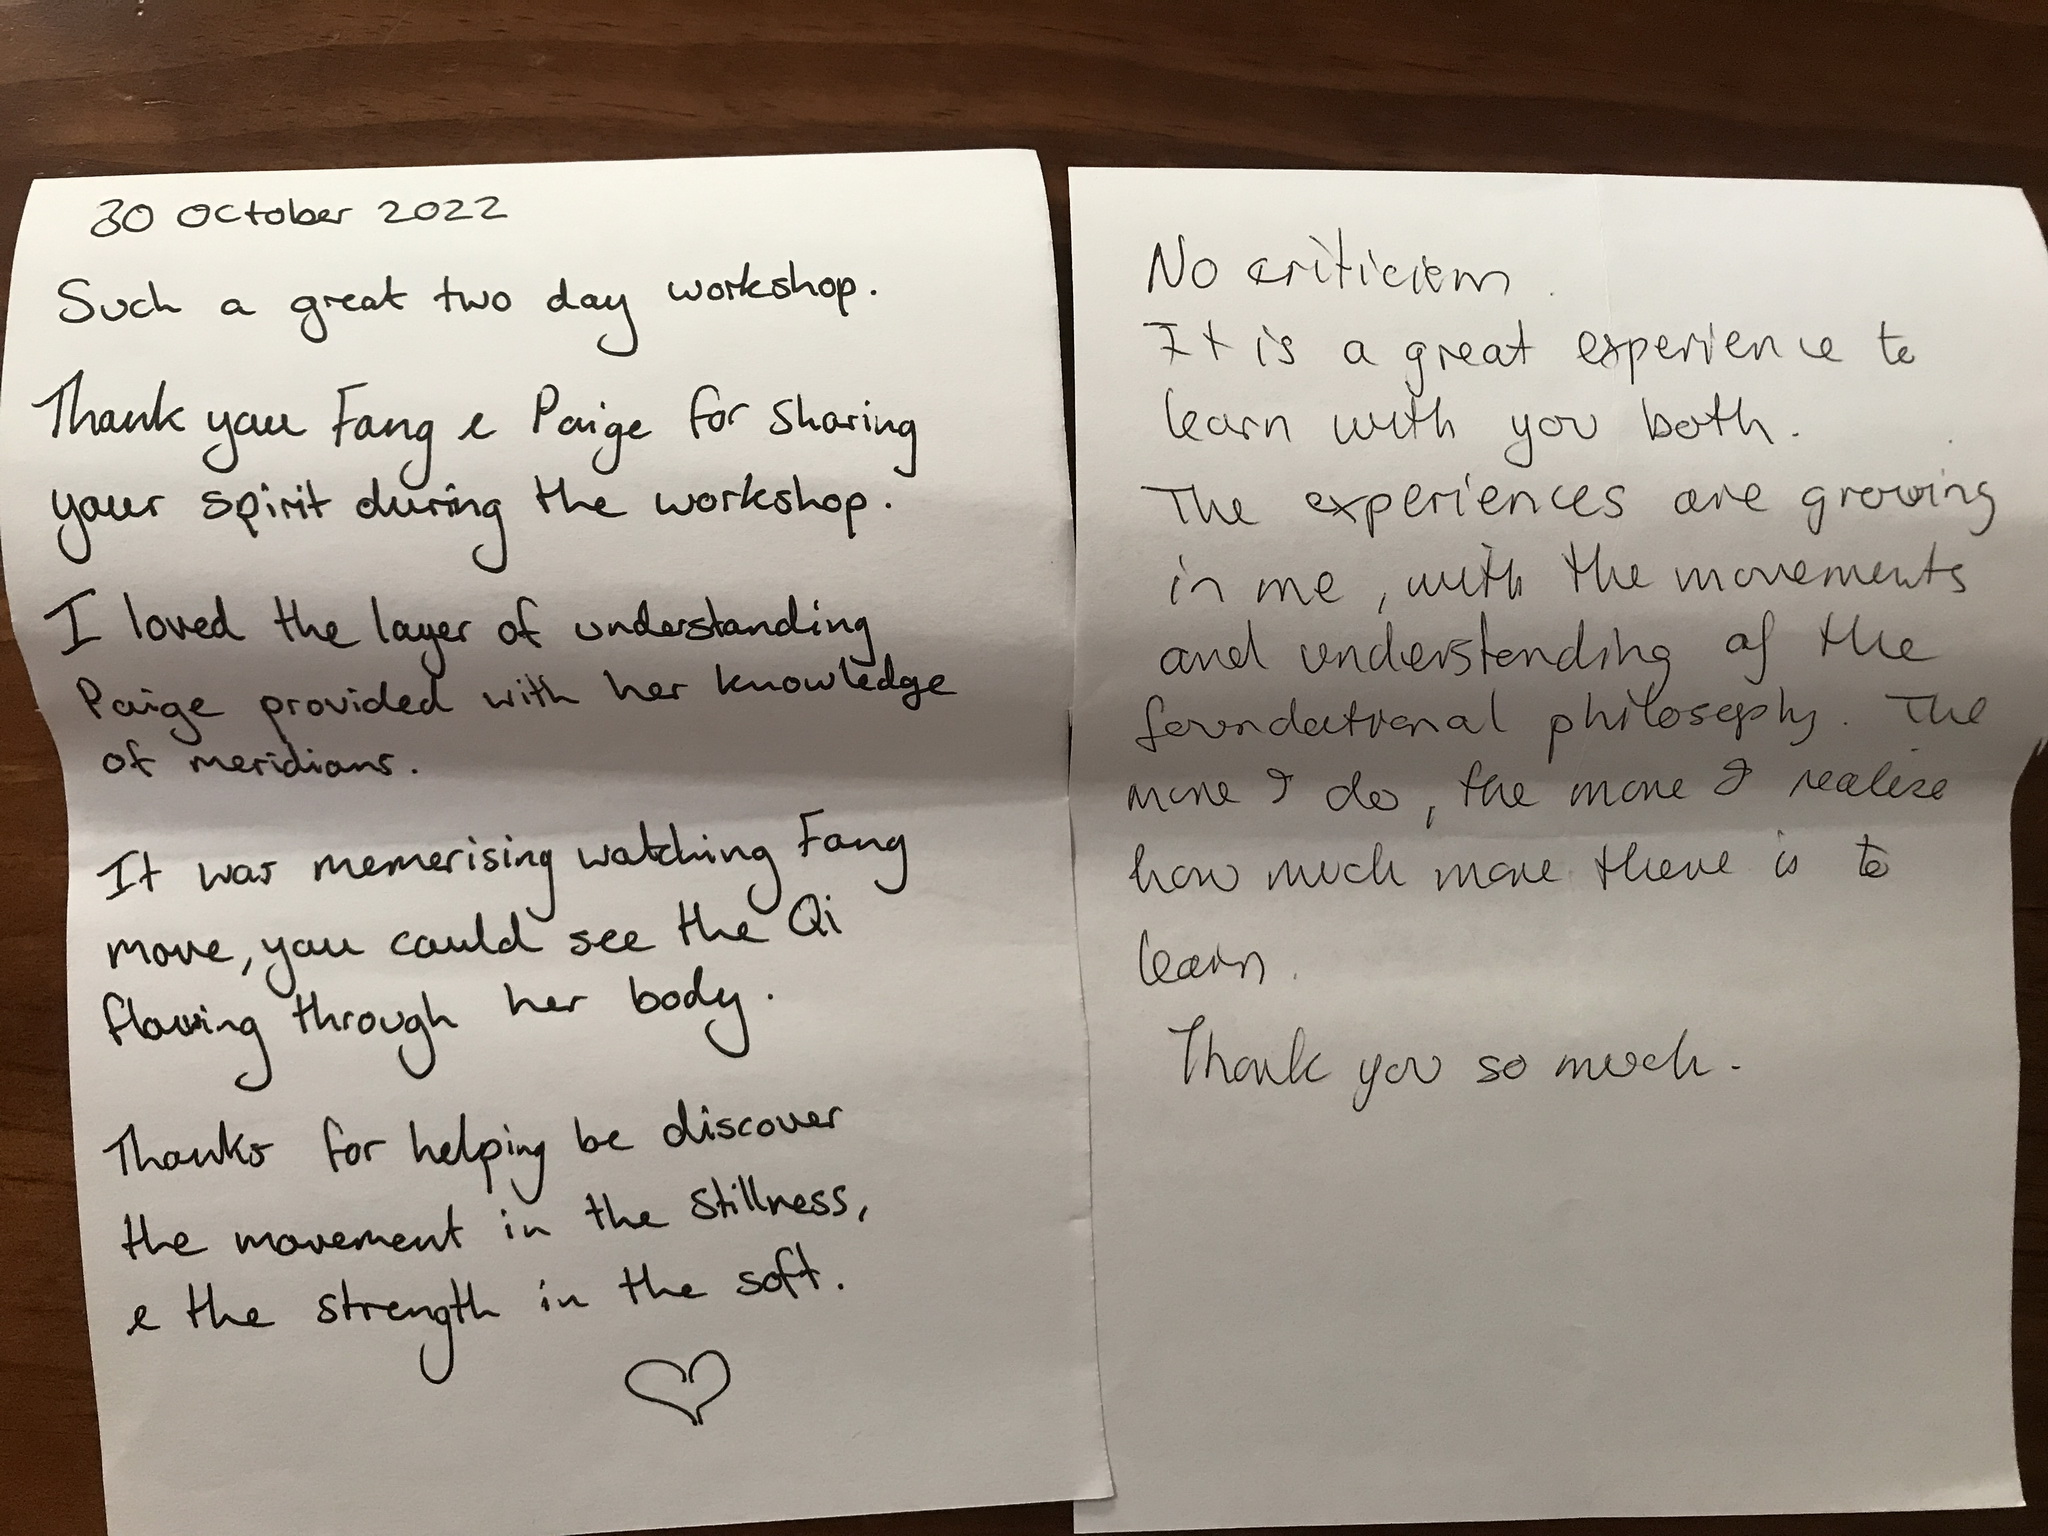 30 October 2022
Such a great two day workshop.
Thank you Fang & Paige for sharing
your spirit during the workshop.
I loved the layer of understanding
Paige provided with her knowledge
of meridians.
It was memerising watching Fang
move, you could see the Qi
flowing through her body.
Thanks for helping be discover
the movement in the stillness,
& the strength in the soft.
No criticism.
It is a great experience to
learn with you both.
The experiences are growing
in me, with the movements
and understanding of the
foundational philosophy. The
more I do, the more I realise
how much more there is to
learn.
Thank you so much.